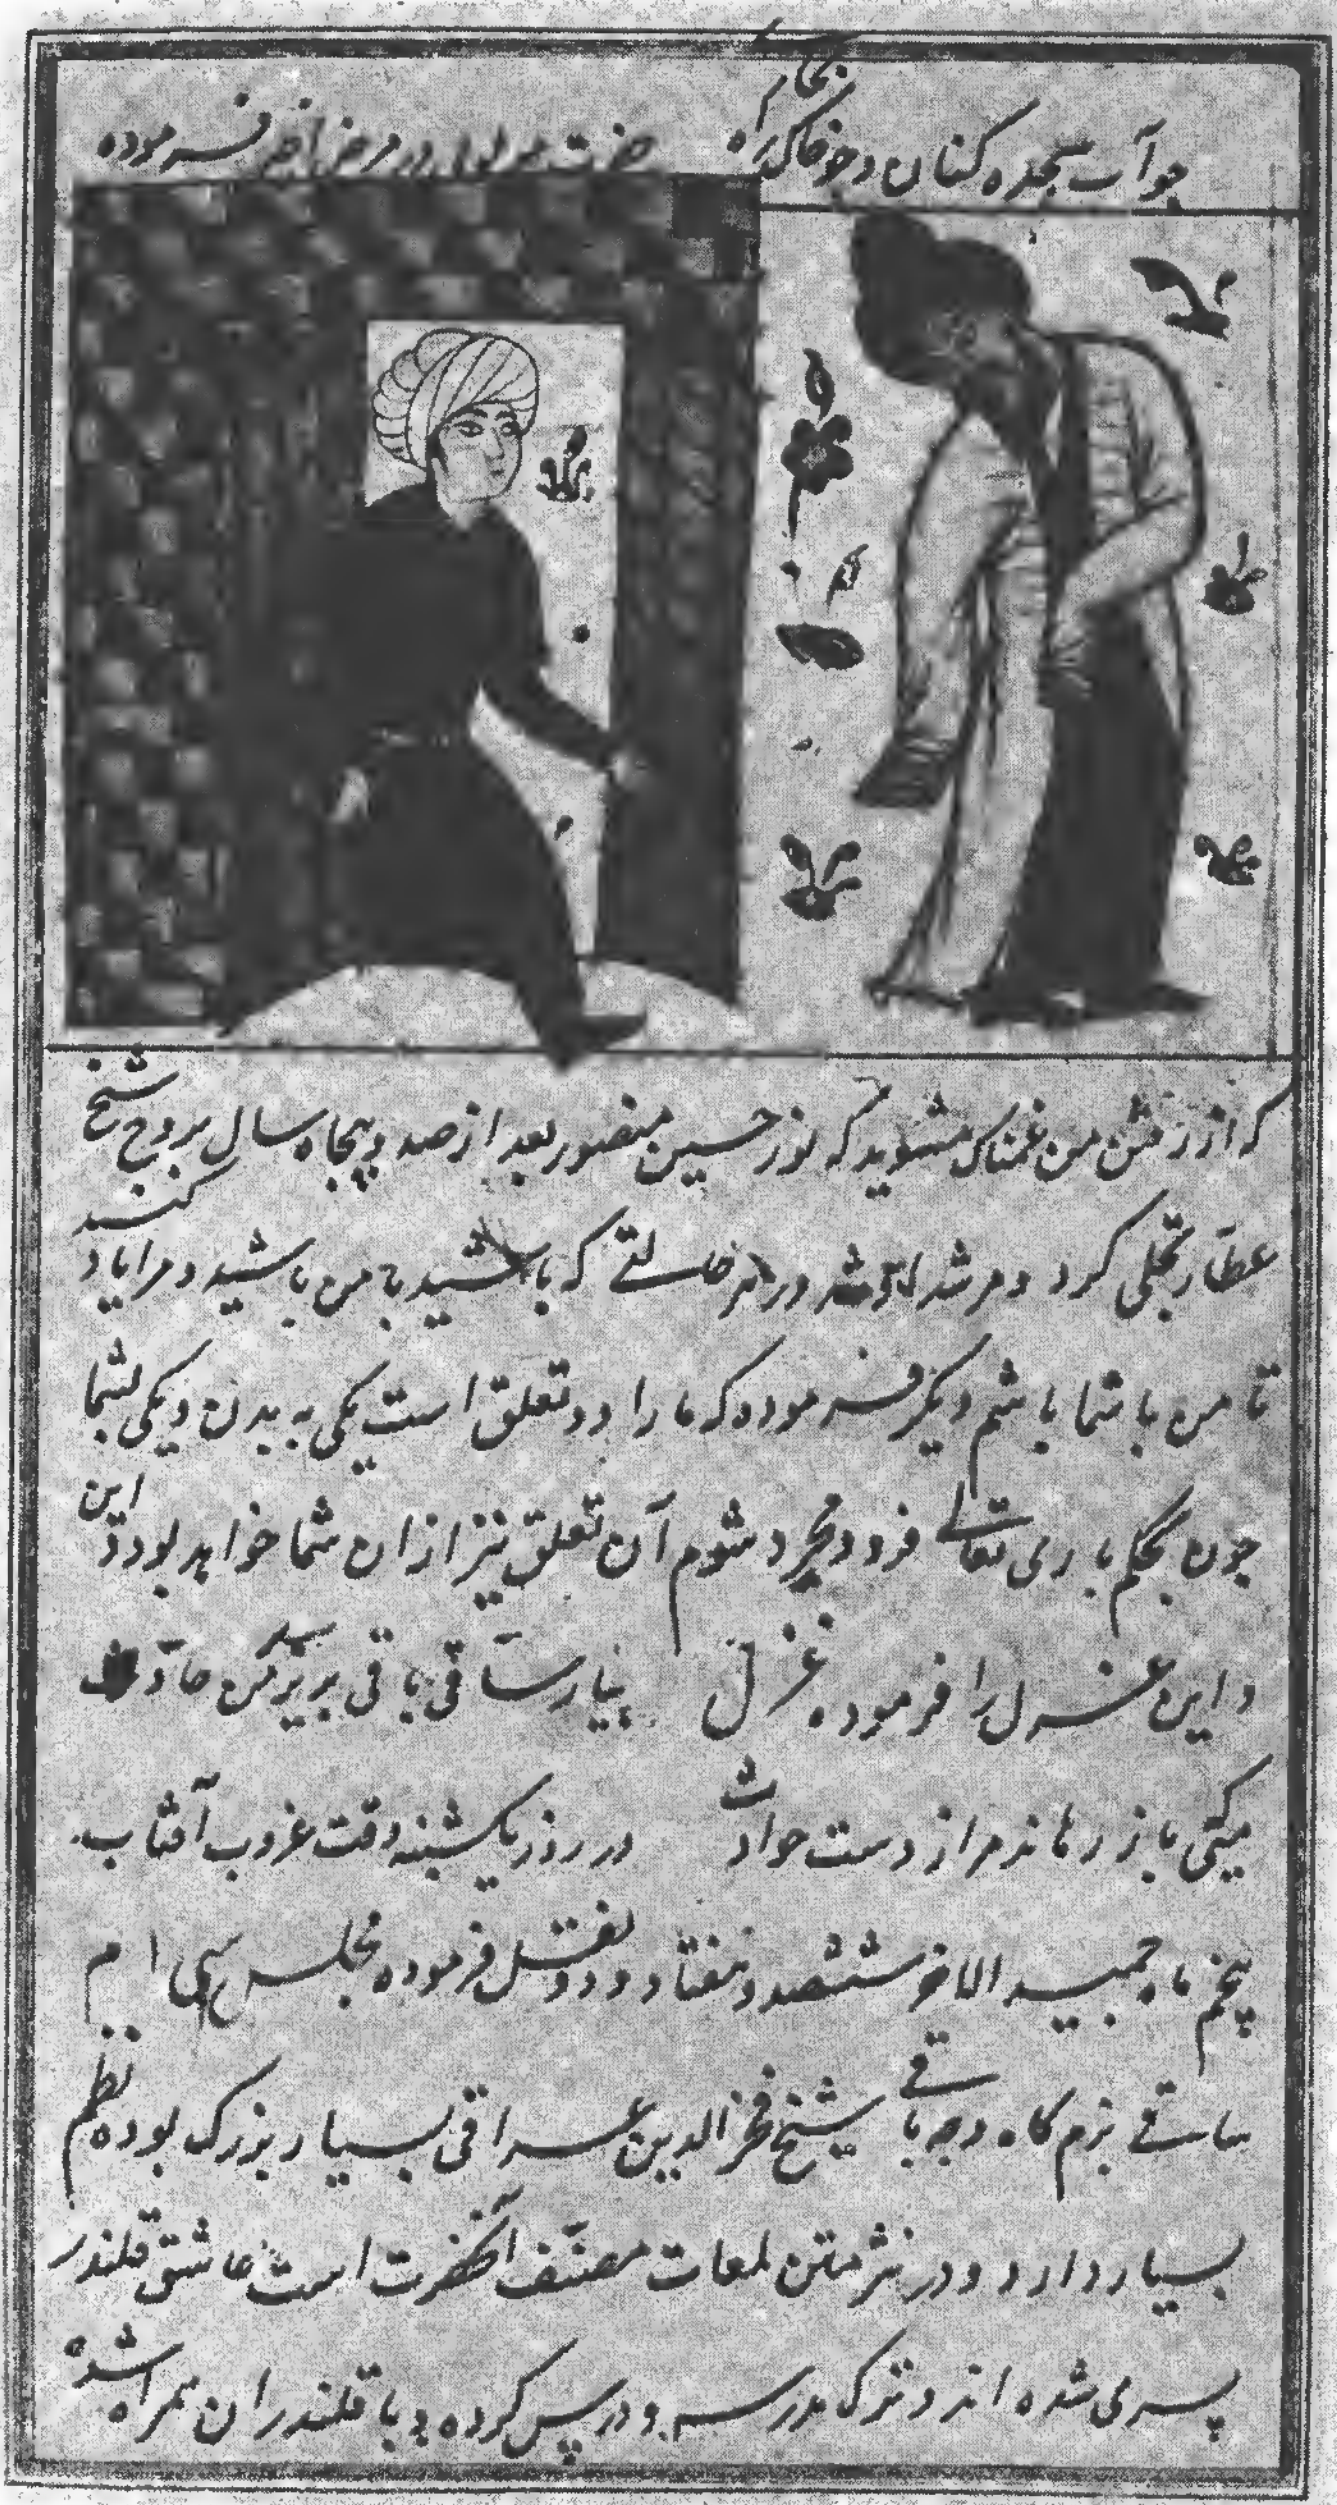 چو آب سجده کنان و چو خاک راه حضرت در مرض آخر فرموده
که از رفتن من غمناک مشوید که نور حسین منصور بعد از صد و پنجاه سال بروح شیخ
عطار تجلی کرد و مرشد او شد در هر حالتی که باشید با من باشید و مرا یاد کنید
تا من با شما باشم دیگر فرموده که ما را دو تعلق است یکی به بدن و یکی بشما
چون بحکم باری تعالی فرد و مجرد شوم آن تعلق نیز از آن شما خواهد بود و این
و این غزل را فرموده غزل بیار ساقی باقی بریز بر سر من
میکی باز رهاند مرا از دست حوادث در روز یکشنبه وقت غروب آفتاب
پنجم ماه جمید الاخر ششصد و هفتاد و دو نقل فرموده مجلس سی ام
ساقی بزم کاه وجه باقی شیخ فخر الدین عراقی بسیار بزرگ بوده نظم
بسیار دارد و در نثر متن لمعات مصنف آنحضرت است عاشق قلندر
پسری شده اند و ترک مدرسه و درس کرده و با قلندران همراه شده